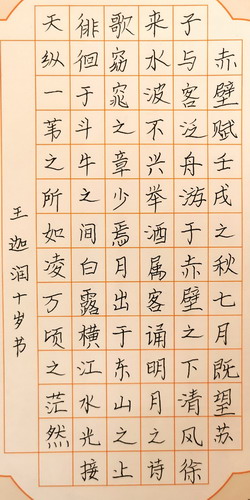 赤壁赋壬戌之秋七月既望苏
子与客泛舟游于赤壁之下清风徐
来水波不兴举酒属客诵明月之诗
歌窈窕之章少焉月出于东山之上
徘徊于斗牛之间白露横江水光接
天纵一苇之所如凌万顷之茫然
王迦润十岁节